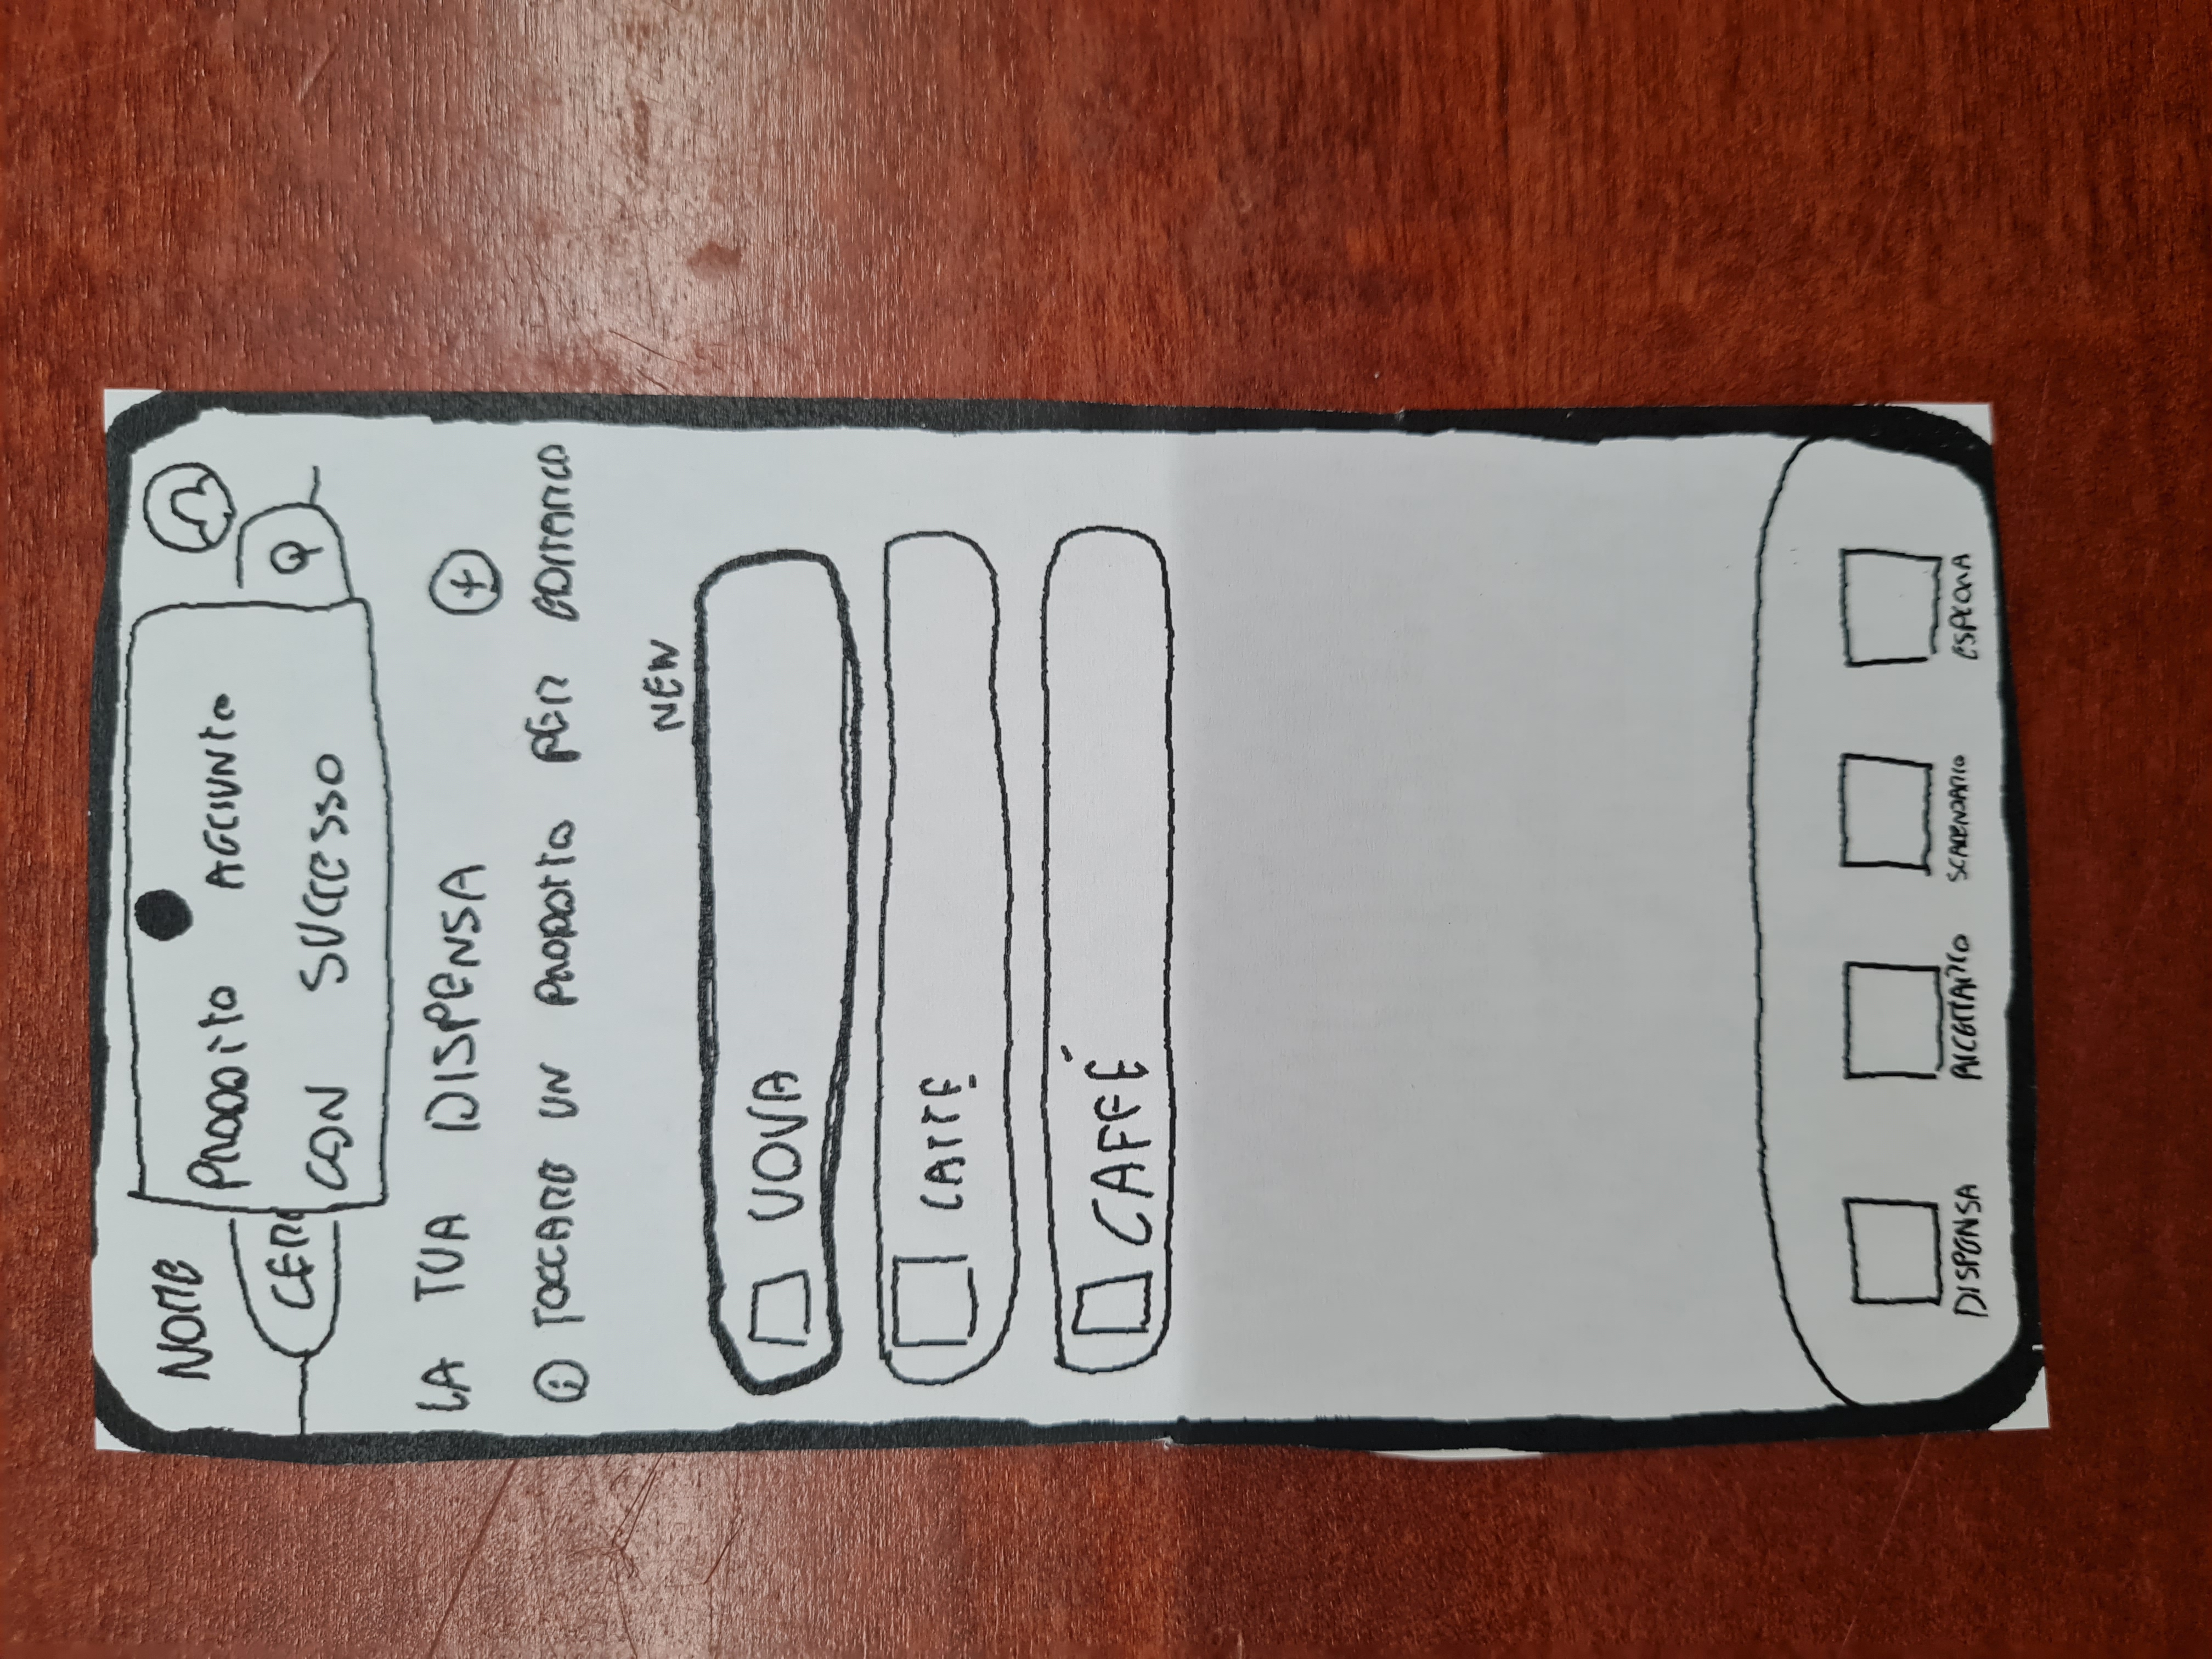 NOME
PRODOTTO AGGIUNTO
CON SUCCESSO
CERC
LA TUA DISPENSA +
i TOCCARE UN PRODOTTO PER EDITARLO
NEW
UOVA
LATTE
CAFFÉ
DISPENSA RICETTARIO SCADENZARIO ESPLORA